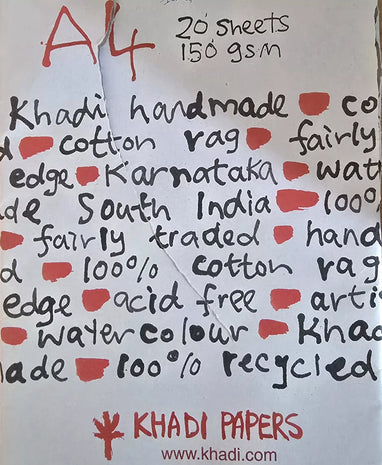 A4
20 sheets
150 gsm
Khadi handmade co
cotton rag fairly
edge Karnataka wat
de South India 100%
fairly traded hand
d 100% cotton rag
edge acid free arti
watercolour Khad
ade 100% recycled
KHADI PAPERS
www.khadi.com